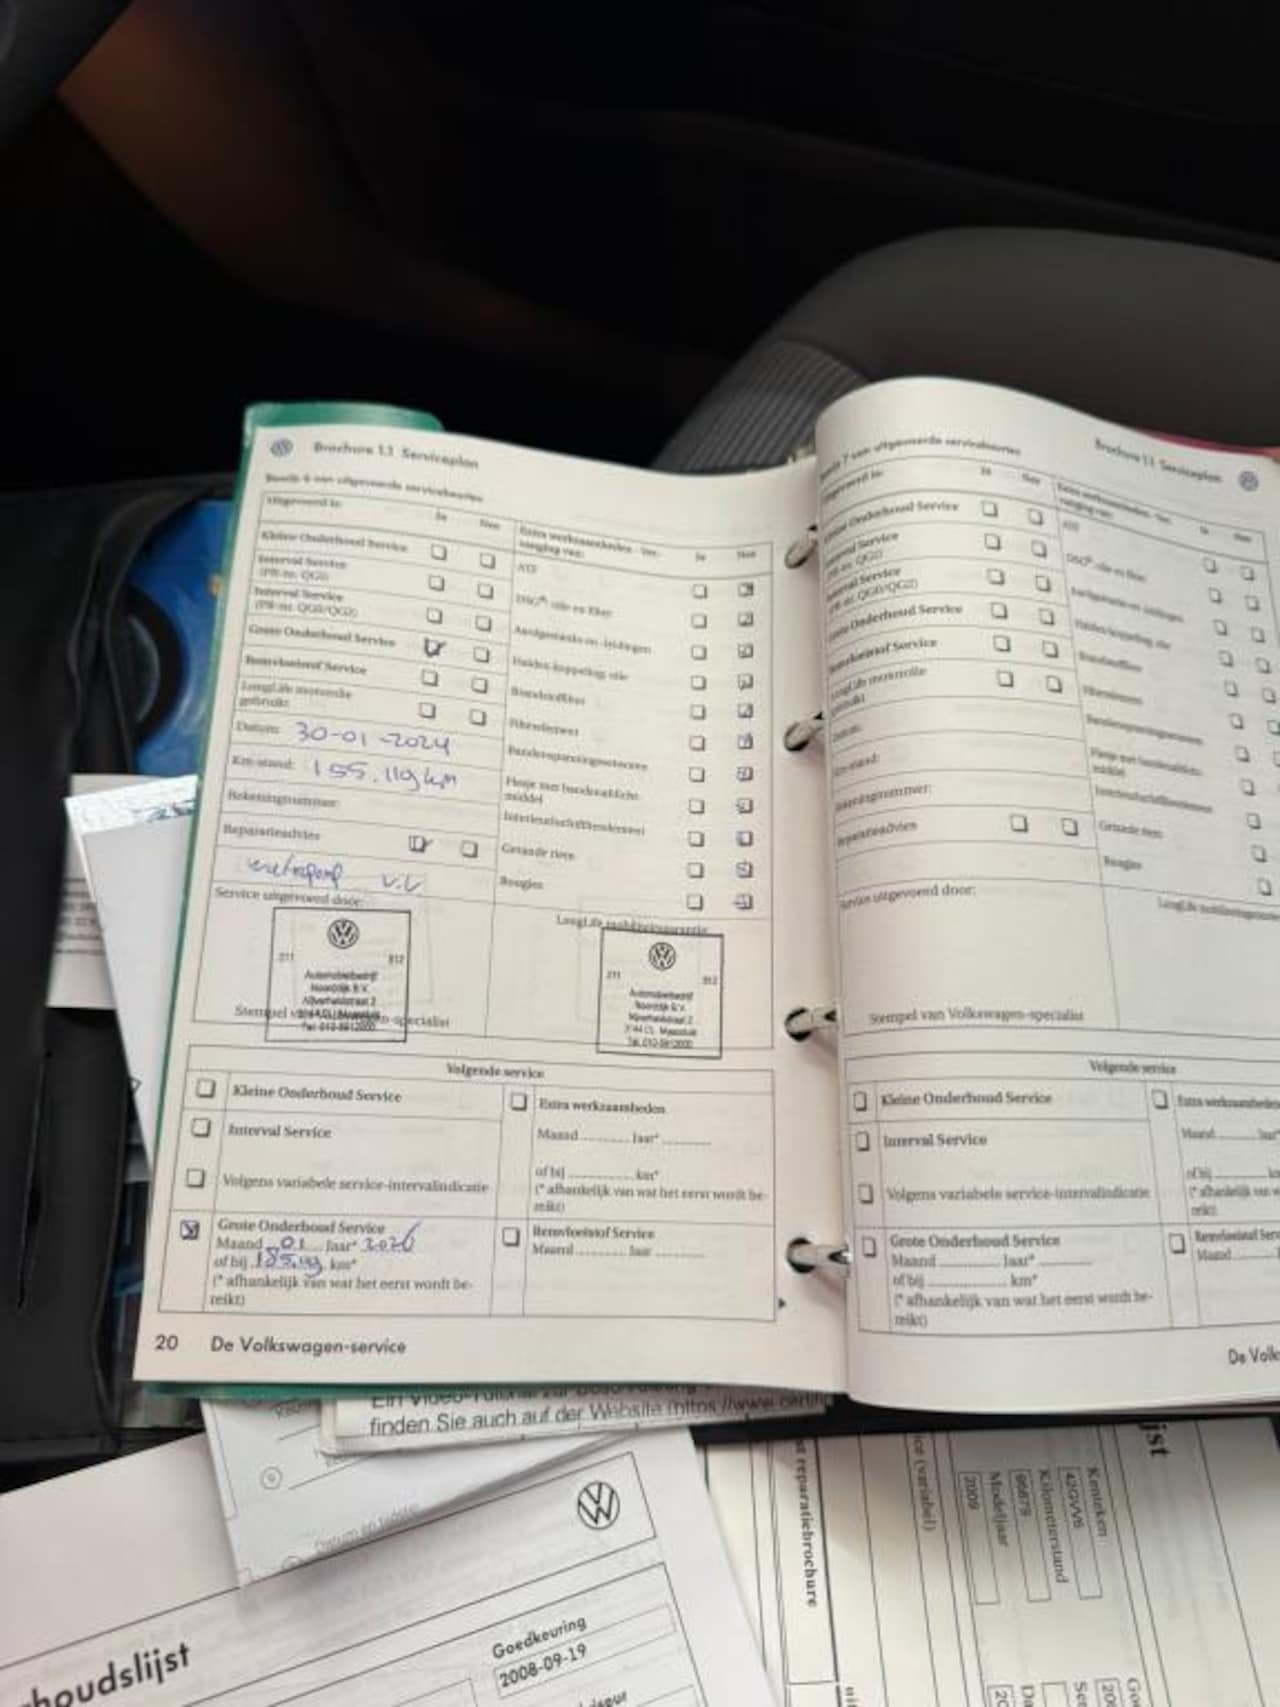 Brochure 1.1 Serviceplan
Bewijs 6 van uitgevoerde servicebeurten
Uitgevoerd is:
Ja
Nee
Extra werkzaamheden - Ver-
vanging van:
Ja
Nee
Kleine Onderhoud Service
Interval Service
(PR-nr. QG1)
Interval Service
(PR-nr. QG0/QG2)
Grote Onderhoud Service
Remvloeistof Service
LongLife motorolie
gebruikt
Datum: 30-01-2024
Km-stand: 155.119 km
Rekeningnummer:
Reparatieadvies
V.V.
Service uitgevoerd door:
ATF
DSG® olie en filter
Aardgastanks en -leidingen
Haldex-koppeling; olie
Brandstoffilter
Filterelement
Bandenspanningssensoren
Flesje met bandenafdicht-
middel
Interieurluchtfilterelement
Getande riem
Bougies
LongLife mobiliteitsgarantie
211
312
Automobielbedrijf
Noordijk B.V.
Nijverheidstraat 2
Tel. 010-5912000
Stempel van Volkswagen-specialist
211
312
Automobielbedrijf
Noordijk B.V.
Nijverheidstraat 2
3144 CL Maassluis
Tel. 010-5912000
Volgende service
Kleine Onderhoud Service
Interval Service
Volgens variabele service-intervalindicatie
Grote Onderhoud Service
Maand 01 Jaar* 2026
of bij 185.119 km*
(* afhankelijk van wat het eerst wordt be-
reikt)
Extra werkzaamheden
Maand Jaar*
of bij km*
(* afhankelijk van wat het eerst wordt be-
reikt)
Remvloeistof Service
Maand Jaar
20 De Volkswagen-service
Brochure 1.1 Serviceplan
Bewijs 7 van uitgevoerde servicebeurten
Uitgevoerd is:
Ja
Nee
Extra werkzaamheden - Ver-
vanging van:
Ja
Nee
Kleine Onderhoud Service
Interval Service
(PR-nr. QG1)
Interval Service
(PR-nr. QG0/QG2)
Grote Onderhoud Service
Remvloeistof Service
LongLife motorolie
Datum:
Km-stand:
Rekeningnummer:
Reparatieadvies
Service uitgevoerd door:
ATF
DSG® olie en filter
Aardgastanks en -leidingen
Haldex-koppeling; olie
Brandstoffilter
Filterelement
Bandenspanningssensoren
Flesje met bandenafdicht-
middel
Interieurluchtfilterelement
Getande riem
Bougies
Stempel van Volkswagen-specialist
Volgende service
Kleine Onderhoud Service
Interval Service
Volgens variabele service-intervalindicatie
Grote Onderhoud Service
Maand Jaar*
of bij km*
(* afhankelijk van wat het eerst wordt be-
reikt)
Extra werkzaamheden
Maand
of bij
Remvloeistof
Maand
De Volk
finden Sie auch auf der Website (https://www.
houdslijst
Goedkeuring
2008-09-19
reparatiebrochure
(variabel)
Kenteken
42GVV6
Kilometerstand
96879
Modeljaar
2009